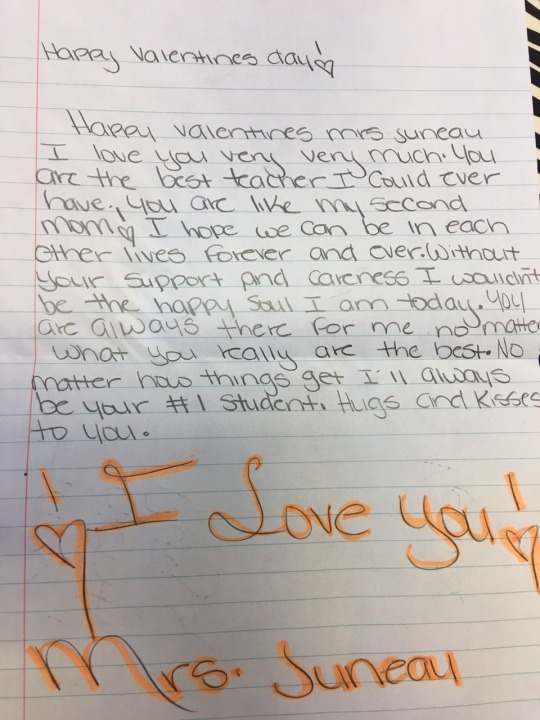 Happy Valentines day!
Happy valentines mrs juneau
I love you very very much. You
are the best teacher I could ever
have, you are like my second
mom I hope we can be in each
other lives forever and ever. Without
your support and careness I wouldn't
be the happy soul I am today. you
are always there for me no matter
what you really are the best. No
matter how things get I'll always
be your #1 student. Hugs and kisses
to you.
I Love you!
Mrs. Juneau